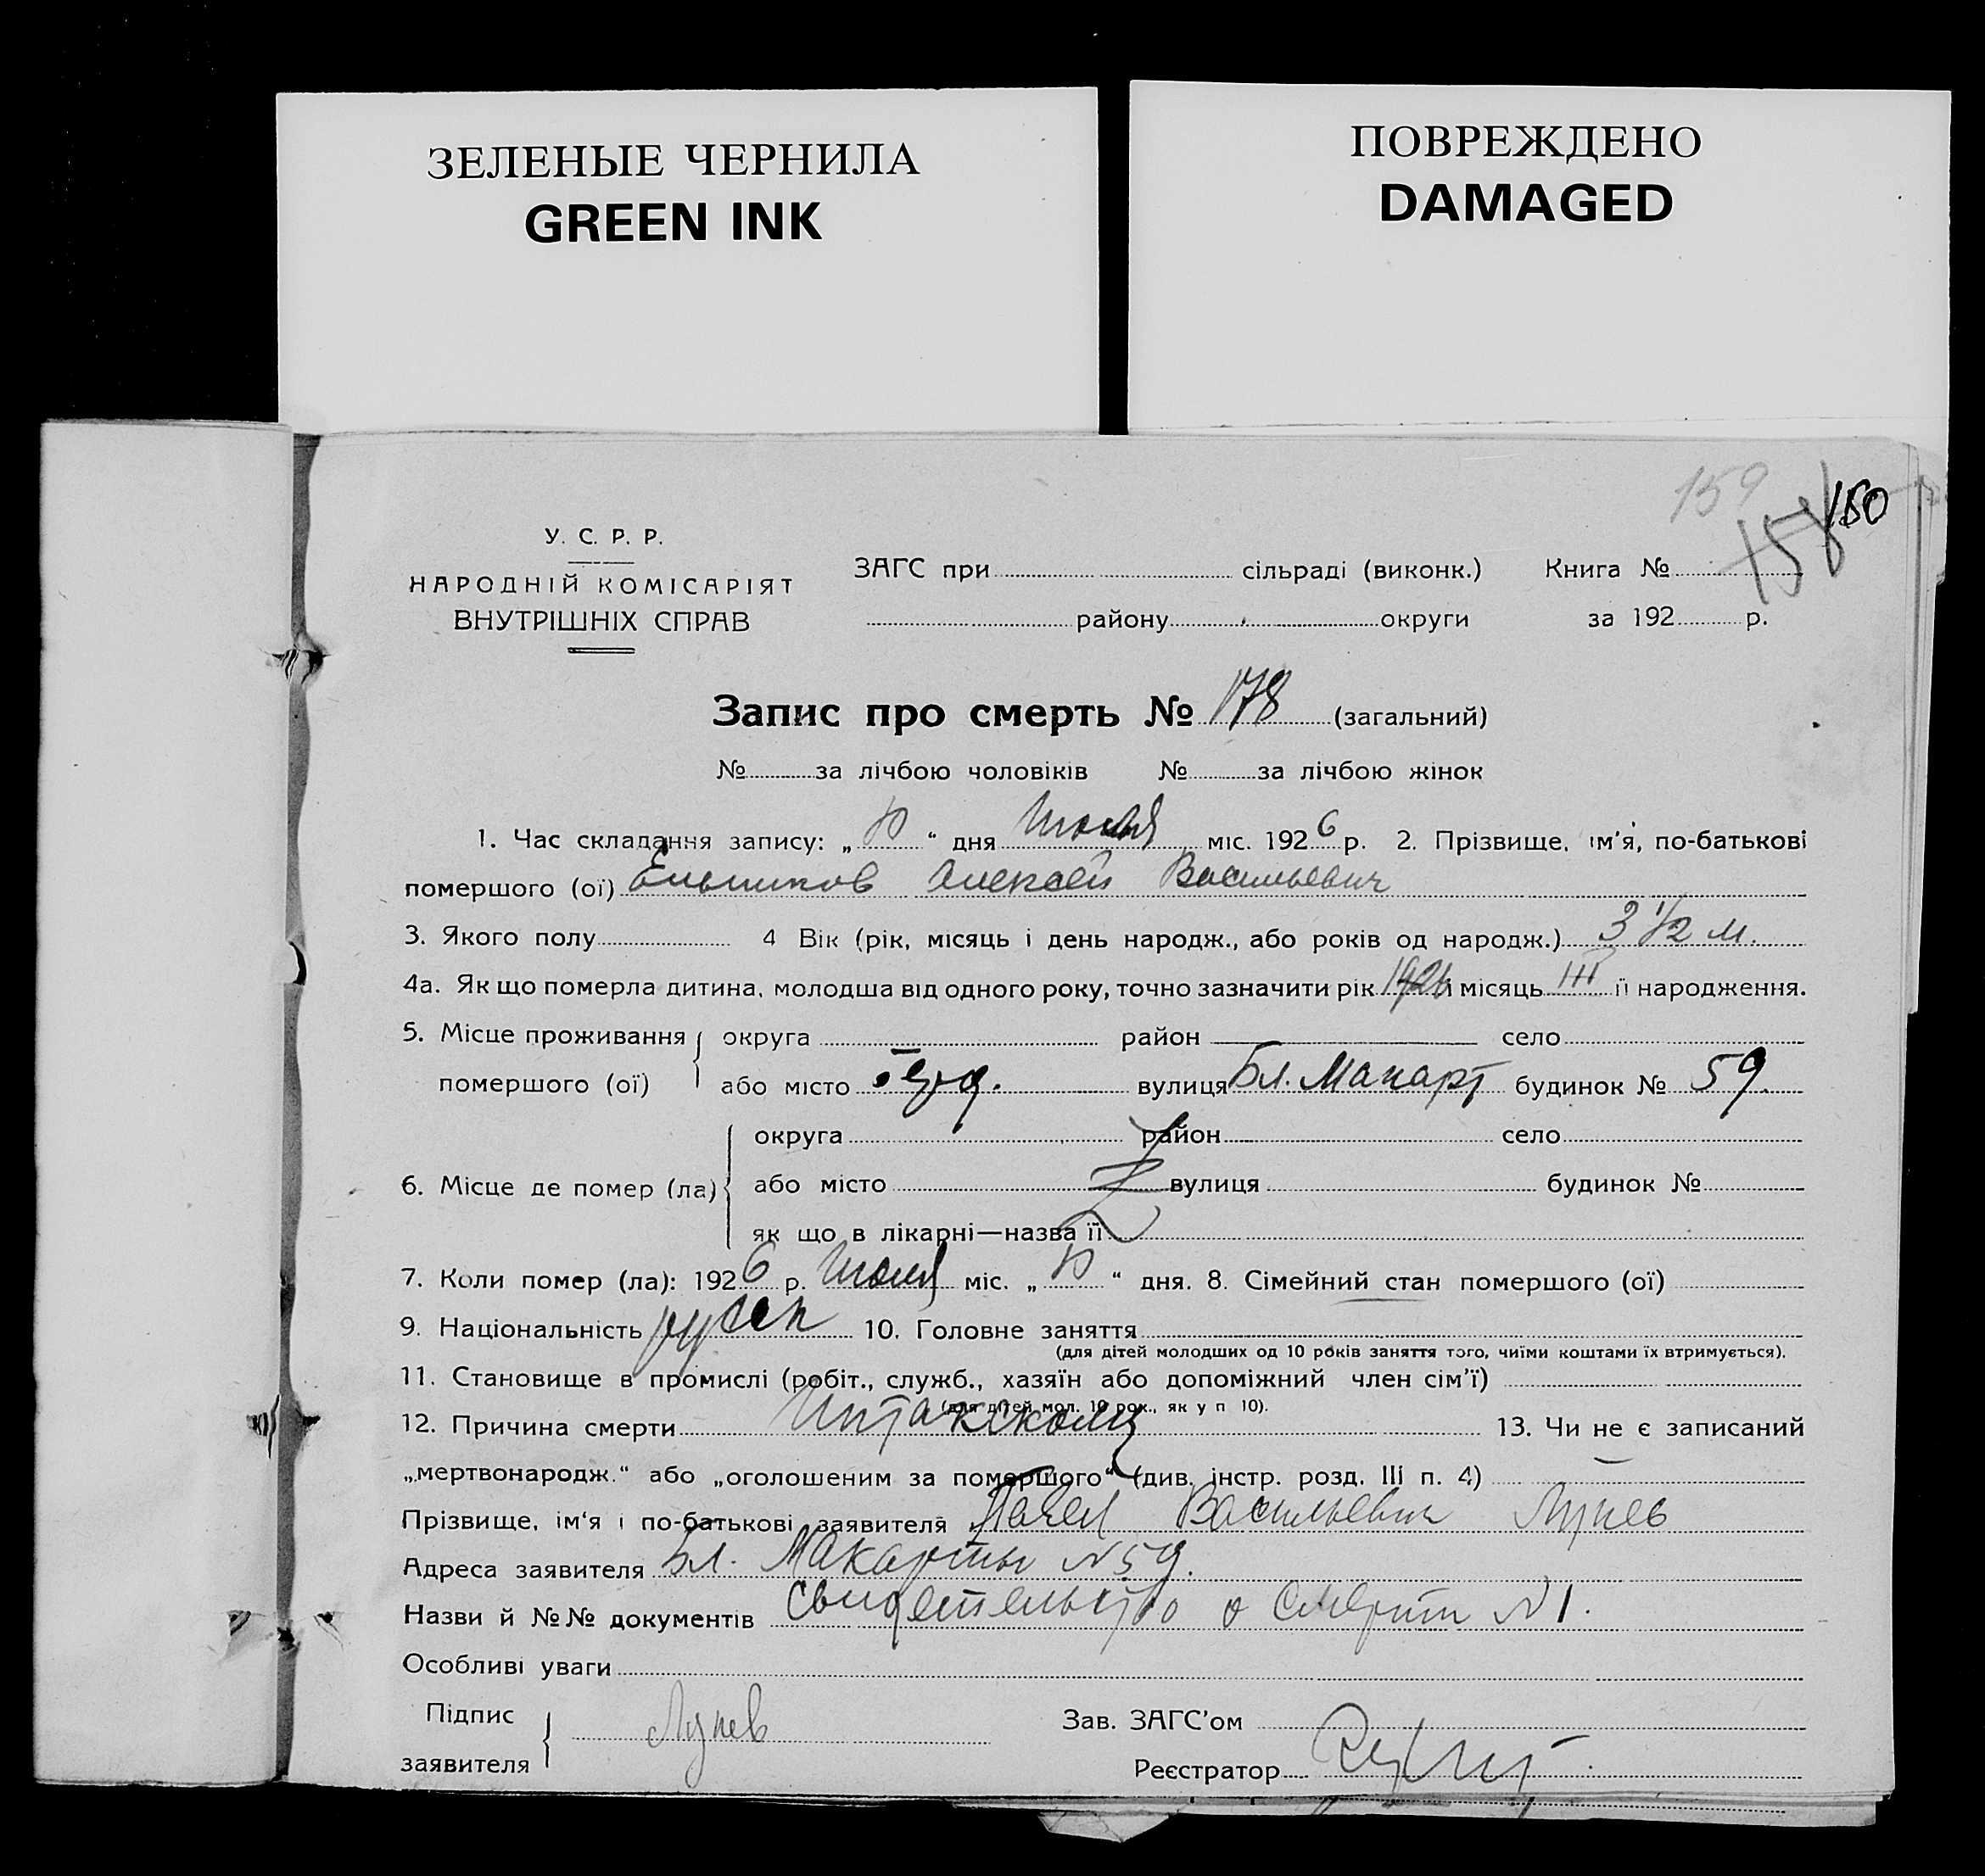 ЗЕЛЕНЫЕ ЧЕРНИЛА
GREEN INK
ПОВРЕЖДЕНО
DAMAGED
159
158 150
У. С. Р. Р.
НАРОДНІЙ КОМІСАРІЯТ
ВНУТРІШНІХ СПРАВ
ЗАГС при сільраді (виконк.) Книга №
району округи за 192 р.
Запис про смерть № 178 (загальний)
№ за лічбою чоловіків № за лічбою жінок
1. Час складання запису: „ 10 “ дня Июля міс. 192 6 р. 2. Прізвище, ім'я, по-батькові
помершого (ої) Ельников Алексей Васильевич
3. Якого полу 4 Вік (рік, місяць і день народж., або років од народж.) 3 1/2 м.
4а. Як що померла дитина, молодша від одного року, точно зазначити рік 1926 і місяць III її народження.
5. Місце проживання округа район село
помершого (ої) або місто вулиця Бл. Макарт будинок № 59.
округа район село
6. Місце де помер (ла) або місто вулиця будинок №
як що в лікарні—назва її
7. Коли помер (ла): 192 6 р. Июля міс. „ 10 “ дня. 8. Сімейний стан помершого (ої)
9. Національність русск 10. Головне заняття
(для дітей молодших од 10 років заняття того, чиїми коштами їх втримується).
11. Становище в промислі (робіт., служб., хазяїн або допоміжний член сім'ї)
(для дітей мол. 10 рок., як у п 10).
12. Причина смерти 13. Чи не є записаний
„мертвонародж.“ або „оголошеним за помершого“ (див. інстр. розд. III п. 4)
Прізвище, ім'я і по-батькові заявителя Павел Васильевич Лунев
Адреса заявителя Бл. Макарты N 59.
Назви й №№ документів Свидетельство о смерти N 1.
Особливі уваги
Підпис
заявителя Лунев
Зав. ЗАГС'ом
Реєстратор